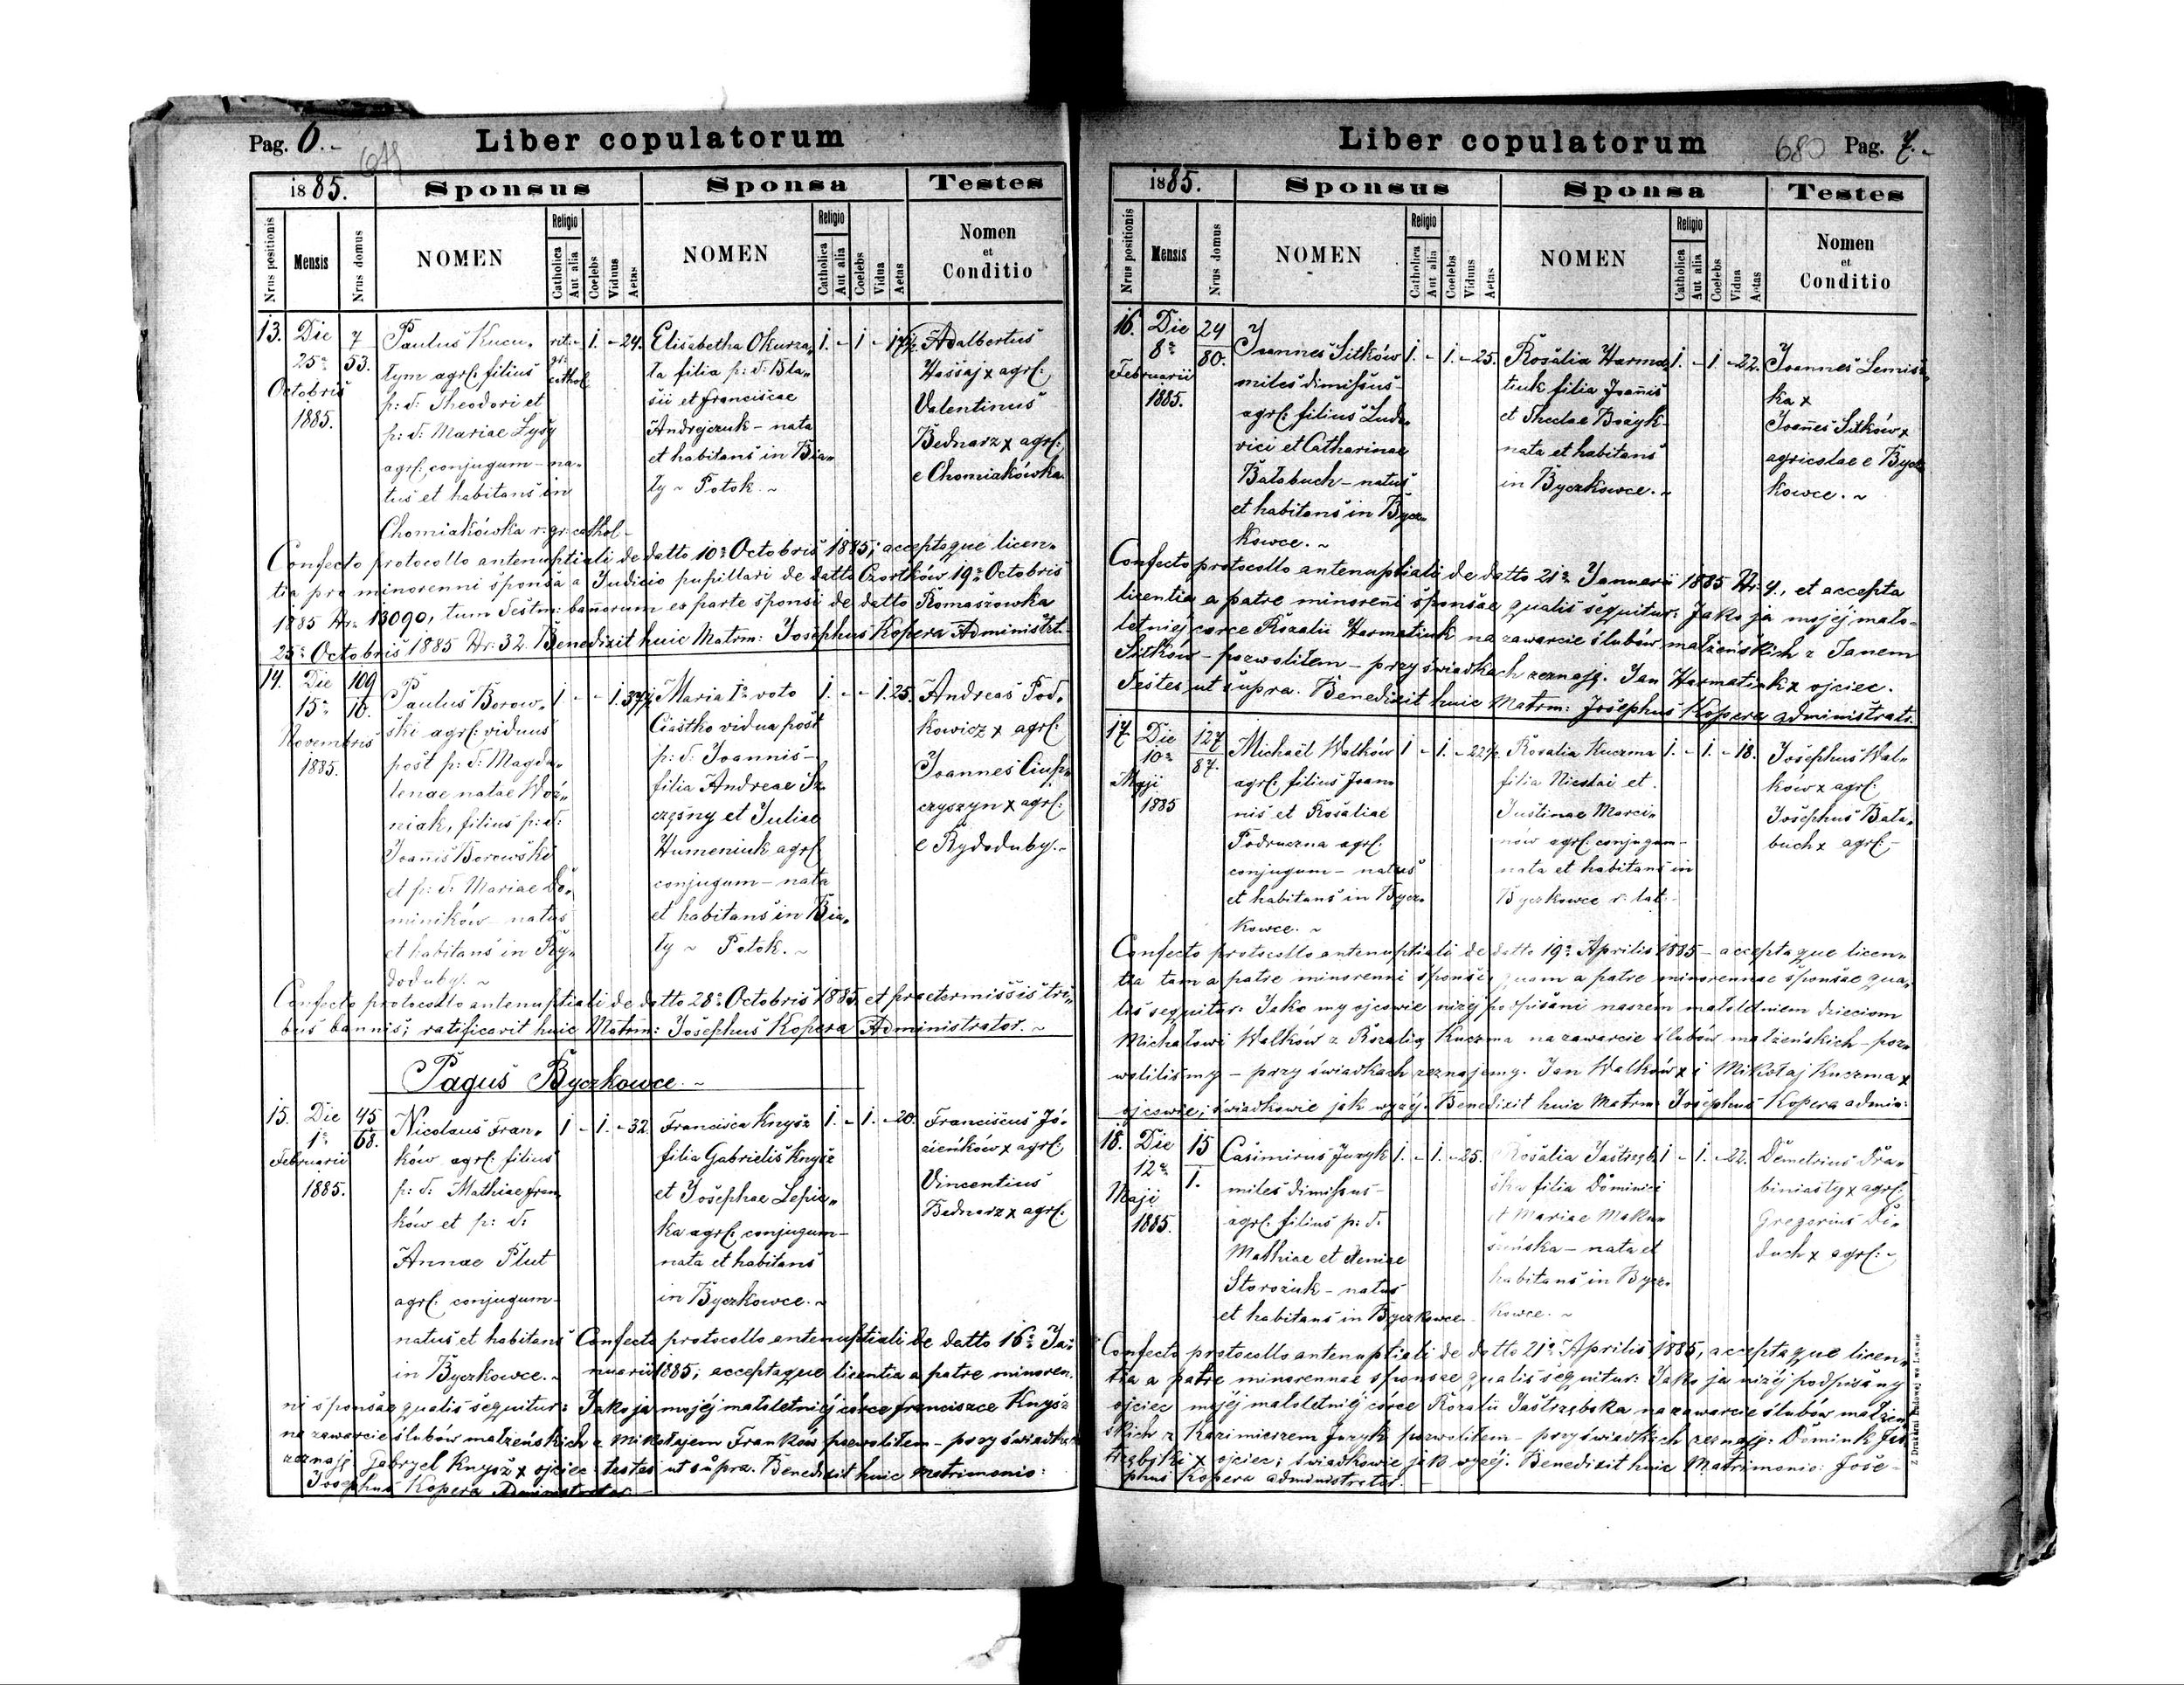 Pag. 6.
Liber copulatorum
1885.
Sponsus
Sponsa
Testes
Nrus positionis
Mensis
Nrus domus
NOMEN
Religio
Catholica
Aut alia
Coelebs
Viduus
Aetas
NOMEN
Religio
Catholica
Aut alia
Coelebs
Vidua
Aetas
Nomen
et
Conditio
13.
Die
25a
Octobris
1885.
7
53.
Paulus Kucu„
tym agrl: filius
p: d: Theodori et
p: d: Mariae Łysy
agrl: conjugum – na„
tus et habitans in
Chomiakówka r: gr: cathol –
rit:
gr:
cathol
1. – 24.
Elisabetha Okurza„
ta filia p: d: Bla„
sii et Franciscae
Andrejczuk – nata
et habitans in Bia„
ły ~ Potok. ~
1. – 1 – 17½
Adalbertus
Hassaj x agrl:
Valentinus
Bednarz x agrl:
e Chomiakówka
Confecto protocollo antenuptiali de datto 10a Octobris 1885; acceptaque licen„
tia pro minorenni sponsa a Judicio pupillari de datto Czortków 19a Octobris
1885 Nr. 13090, tum Testm: bannorum ex parte sponsi de datto Romaszowka
25a Octobris 1885 Nr. 32. Benedixit huic Matrm: Josephus Kopera Administ.
14.
Die
15a
Novembris
1885.
109
16.
Paulus Borow„
ski agrl: viduus
post p: d: Magda„
lenae natae Woź„
niak, filius p: d:
Joannis Borowski
et p: d: Mariae Do„
miników – natus
et habitans in Ry„
doduby. ~
1 – – 1. 37½
Maria 1o voto
Ciastko vidua post
p: d: Joannis –
filia Andreae Sz
częsny et Juliae
Humeniuk agrl
conjugum – nata
et habitans in Bia„
ły ~ Potok. ~
1. – – 1. 25.
Andreas Pod„
kowicz x agrl:
Joannes Ciup„
czyszyn x agrl:
e Rydoduby. ~
Confecto protocollo antenuptiali de datto 28a Octobris 1885 et praetermissis tri„
bus bannis; ratificavit huic Matrm: Josephus Kopera Administrator. ~
Pagus Byczkowce. ~
15.
Die
1a
Februarii
1885.
45
68.
Nicolaus Fran„
ków agrl: filius
p: d: Mathiae Fran
ków et p: d:
Annae Plut
agrl: conjugum –
natus et habitans
in Byczkowce. ~
1 – 1. – 32.
Francisca Knysz
filia Gabrielis Knysz
et Josephae Lepic„
ka agrl: conjugum –
nata et habitans
in Byczkowce. ~
1. – 1. – 20.
Franciscus Jó„
zieńków x agrl:
Vincentius
Bednarz x agrl:
Confecto protocollo antenuptiali de datto 16a Ja„
nuarii 1885; acceptaque licentia a patre minoren„
ni sponsae qualis sequitur: Jako ja mojéj małoletniéj córce Franciszce Knysz
na zawarcie ślubów małżeńskich z Mikołajem Franków pozwoliłem – przy świadkach
zeznaję. Gabryel Knysz x ojciec: testes ut supra. Benedixit huic Matrimonio:
Josephus Kopera Administrator –
Liber copulatorum
680
Pag. 7. ~
1885.
Sponsus
Sponsa
Testes
Nrus positionis
Mensis
Nrus domus
NOMEN
Religio
Catholica
Aut alia
Coelebs
Viduus
Aetas
NOMEN
Religio
Catholica
Aut alia
Coelebs
Vidua
Aetas
Nomen
et
Conditio
16.
Die
8a
Februarii
1885.
24
80.
Joannes Sitków
miles dimissus –
agrl: filius Ludo„
vici et Catharinae
Bałabuch – natus
et habitans in Bycz„
kowce. ~
1. – 1. – 25.
Rosalia Harma„
tiuk filia Joannis
et Theclae Bożyk –
nata et habitans
in Byczkowce. ~
1. – 1 – 22.
Joannes Lemisz„
ka x
Joannes Sitków x
agricolae e Bycz
kowce. ~
Confecto protocollo antenuptiali de datto 21a Januarii 1885 Nr. 4., et accepta
licentia a patre minorenni sponsae qualis sequitur: Jako ja mojéj mało„
letniéj córce Rozalii Harmatiuk na zawarcie ślubów małżeńskich z Janem
Sitków – pozwoliłem – przy świadkach zeznaję. Jan Harmatiuk x ojciec.
Testes ut supra. Benedixit huic Matrm: Josephus Kopera administrat:
17.
Die
10a
Maji
1885
127
87.
Michaël Walków
agrl: filius Joan„
nis et Rosaliae
Podruczna agrl:
conjugum – natus
et habitans in Bycz„
kowce. ~
1 – 1. – 22½.
Rosalia Kuczma
filia Nicolai et
Justinae Marci„
nów agrl: conjugum –
nata et habitans in
Byczkowce r: lat: –
1. – 1. – 18.
Josephus Wal„
ków x agrl:
Josephus Bała„
buch x agrl: –
Confecto protocollo antenuptiali de datto 19a Aprilis 1885 – acceptaque licen„
tia tam a patre minorenni sponsi, quam a patre minorennae sponsae qua„
lis sequitur: Jako my ojcowie niżéj podpisani naszém małoletniem dzieciom
Michałowi Walków z Rozalią Kuczma na zawarcie ślubów małżeńskich – poz„
woliliśmy – przy świadkach zeznajemy. Jan Walków x i Mikołaj Kuczma x
ojcowie; świadkowie jak wyżéj. Benedixit huic Matrm: Josephus Kopera admin:
18.
Die
12a
Maji
1885.
15
1.
Casimirus Juzyk
miles dimissus –
agrl: filius p: d:
Mathiae et Xeniae
Storożuk – natus
et habitans in Byczkowce.
1. – 1. – 25.
Rosalia Jastrzęb„
ska filia Dominici
et Mariae Maku„
szeńska – nata et
habitans in Bycz„
kowce. ~
1 – 1. – 22.
Demetrius Dra„
biniasty x agrl:
Gregorius Di„
duch x agrl: ~
Confecto protocollo antenuptiali de datto 21a Aprilis 1885, acceptaque licen„
tia a patre minorennae sponsae qualis sequitur: Jako ja niżéj podpisany
ojciec mojéj małoletniéj córce Rozalii Jastrzębska na zawarcie ślubów małżeń„
skich z Kazimierzem Juzyk pozwoliłem – przy świadkach zeznaję: Dominik Jas„
trzębski x ojciec; świadkowie jak wyżéj. Benedixit huic Matrimonio: Jose„
phus Kopera administrator. –
Z Drukarni Ludowej we Lwowie